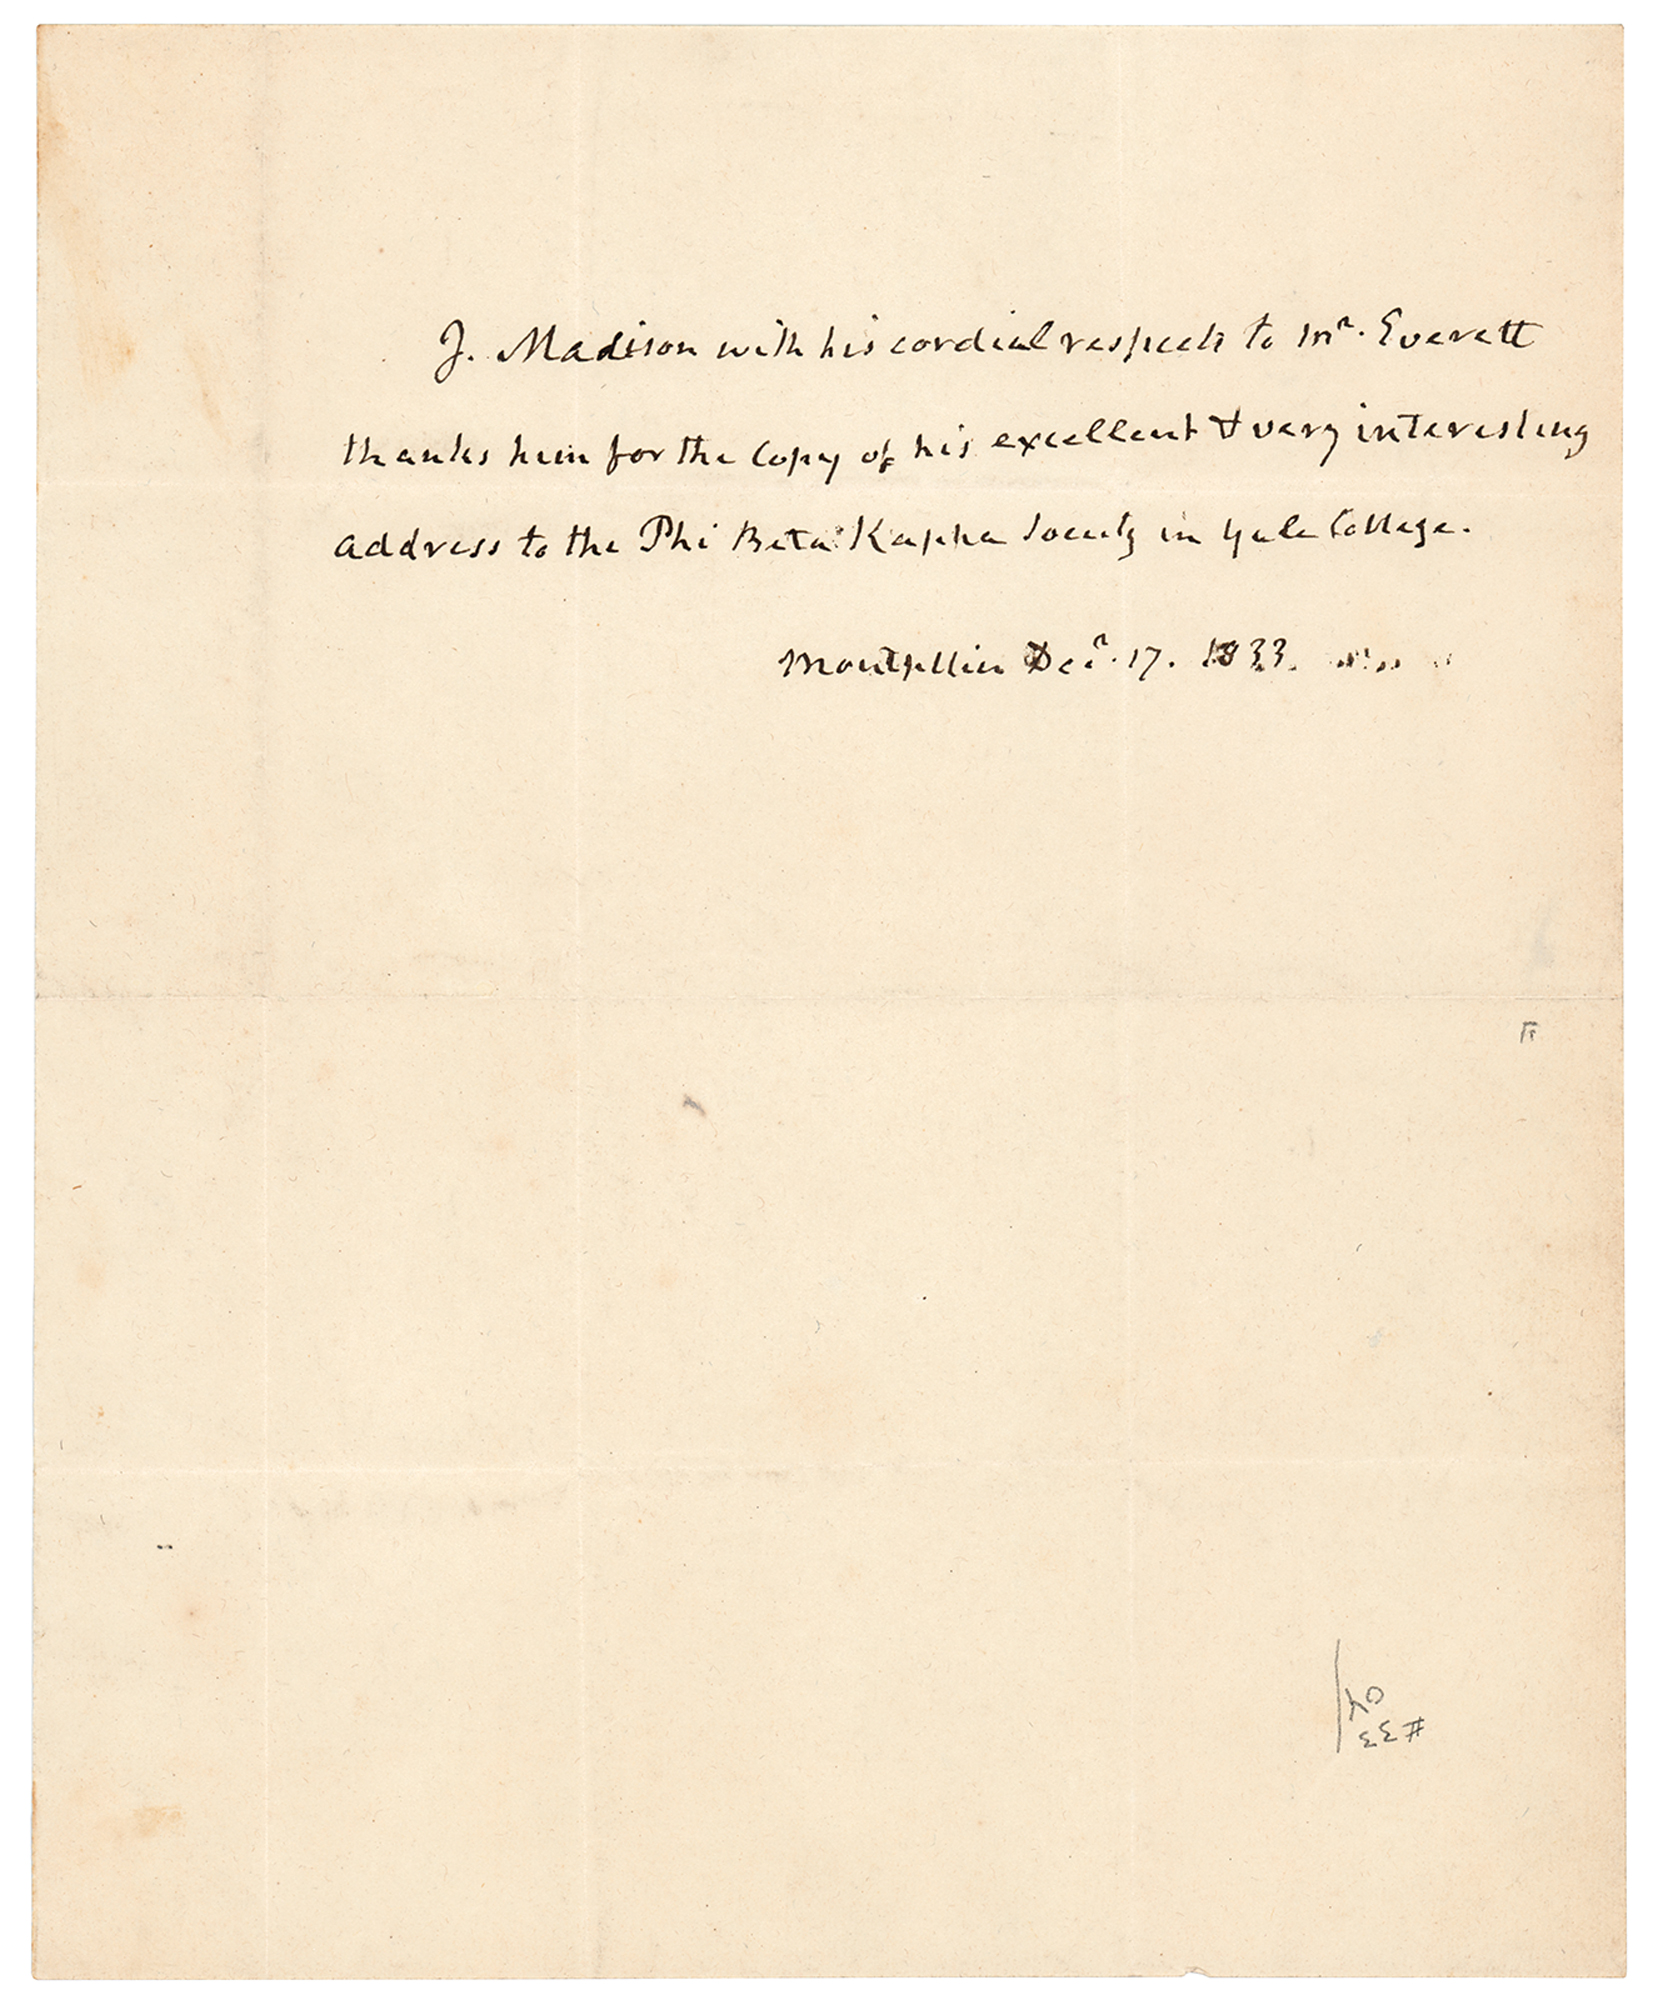 J. Madison with his cordial respects to Mr. Everett
thanks him for the copy of his excellent & very interesting
address to the Phi Beta Kappa Society in Yale College.
Montpellier Decr. 17. 1833.
#33